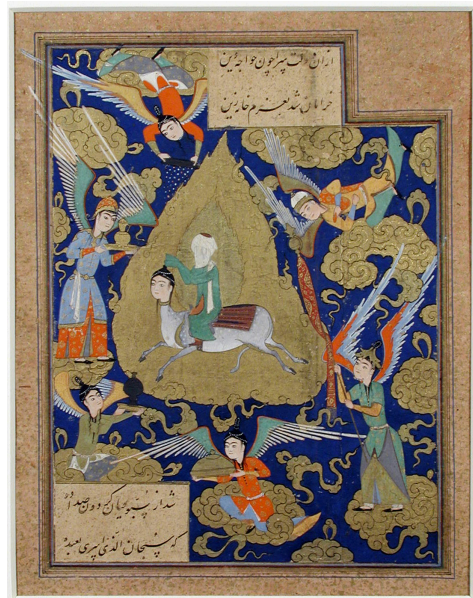 ازان دولت سرا چون خواجه دین
خرامان شد بعزم خانه زین
شد از سبوحیان گردون صدا ده
که سبحان الذی اسری بعبده